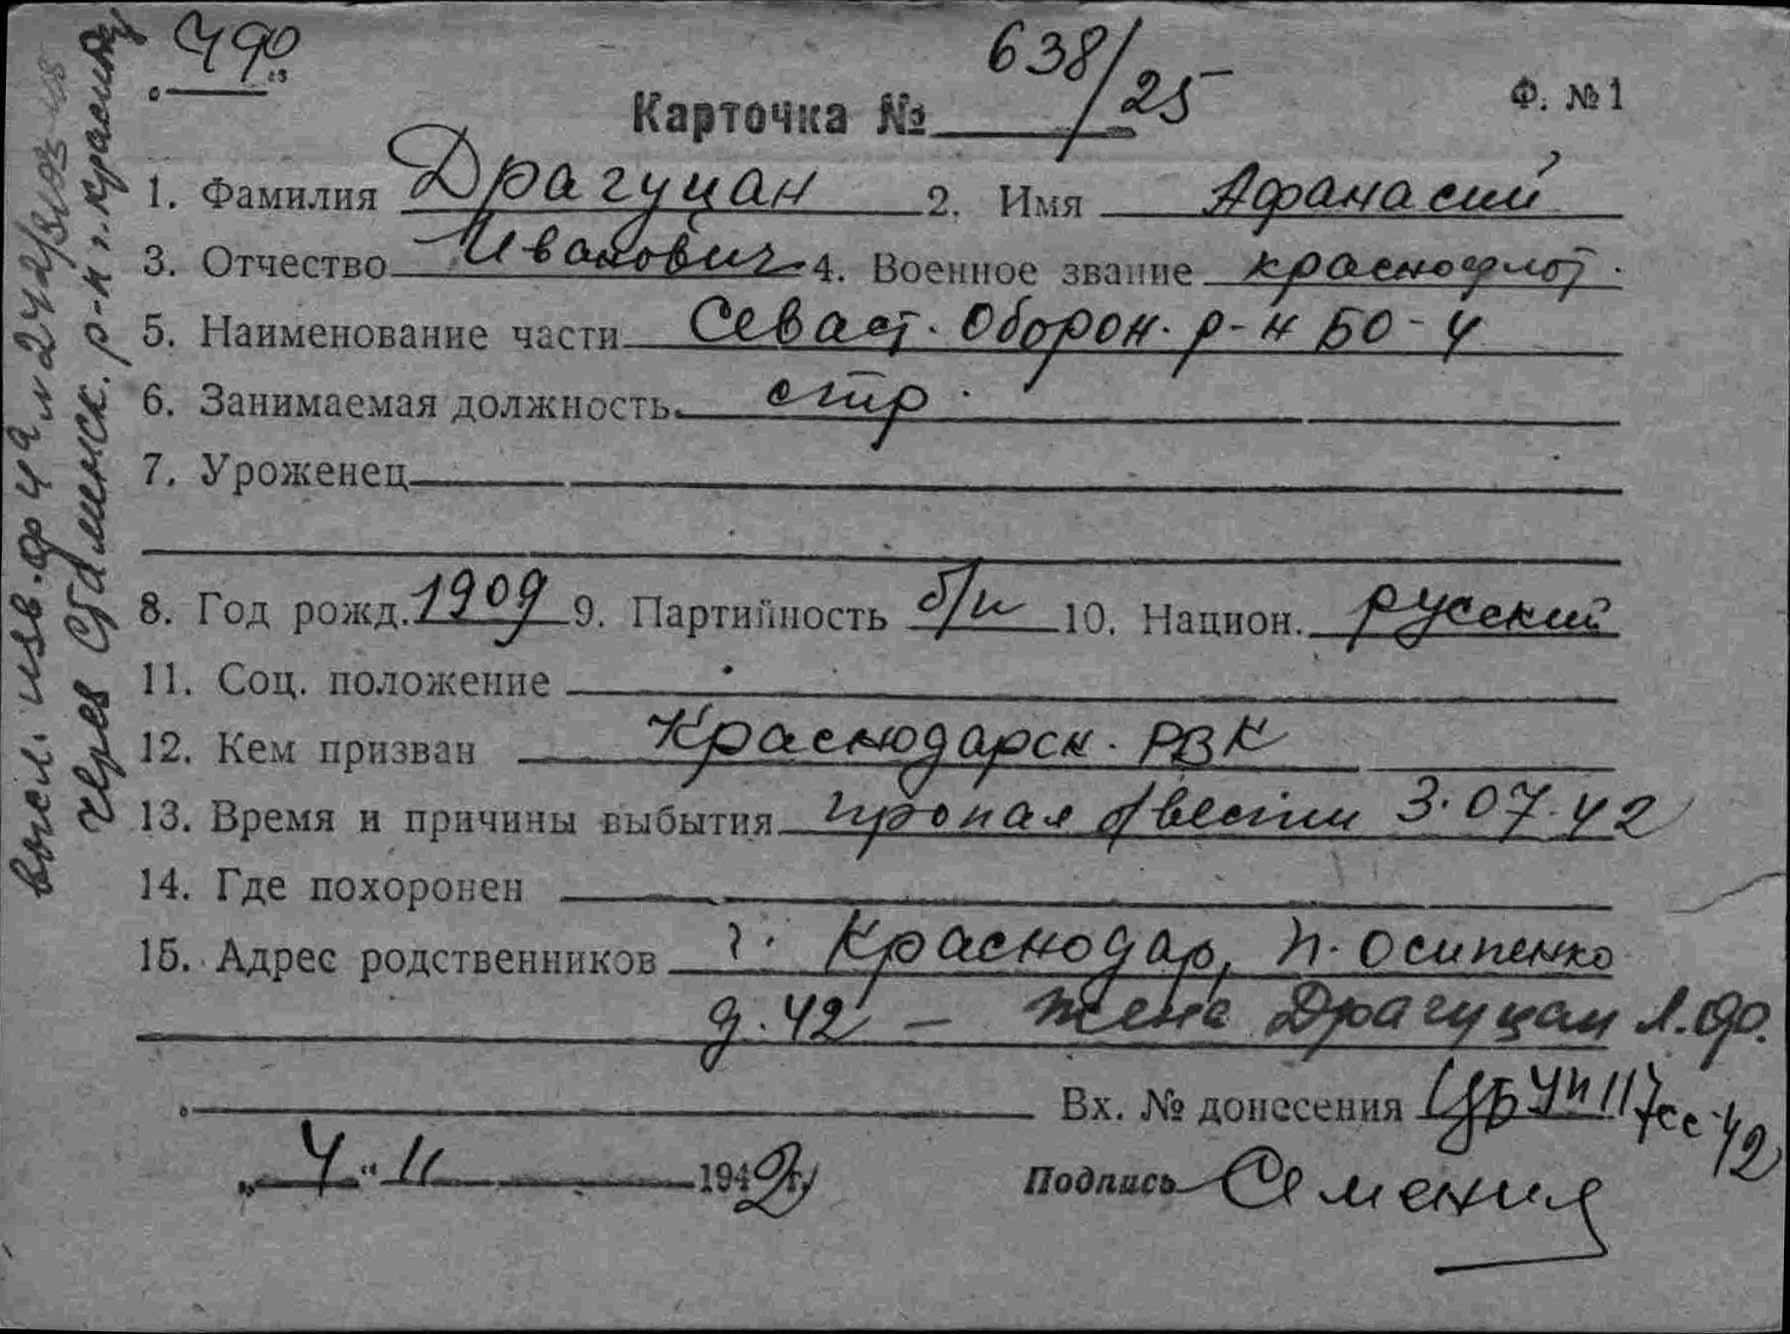 790
Карточка № 638/25
Ф. № 1
1. Фамилия Драгуцан 2. Имя Афанасий
3. Отчество Иванович 4. Военное звание краснофлот.
5. Наименование части Севаст. Оборон. р-н БО-ЧФ
6. Занимаемая должность стр.
7. Уроженец
8. Год рожд. 1909 9. Партийность б/п 10. Национ. русский
11. Соц. положение
12. Кем призван Краснодарск. РВК
13. Время и причины выбытия пропал б/вести 3.07.42
14. Где похоронен
15. Адрес родственников г. Краснодар, п. Осипенко
д. 42 – жена Драгуцан Л.Ф.
Вх. № донесения ЦБ 117сс-42
„4" 11 1942 г.
Подпись
высл. изв. ф 4а
через Сталинск. р-н г. Краснод